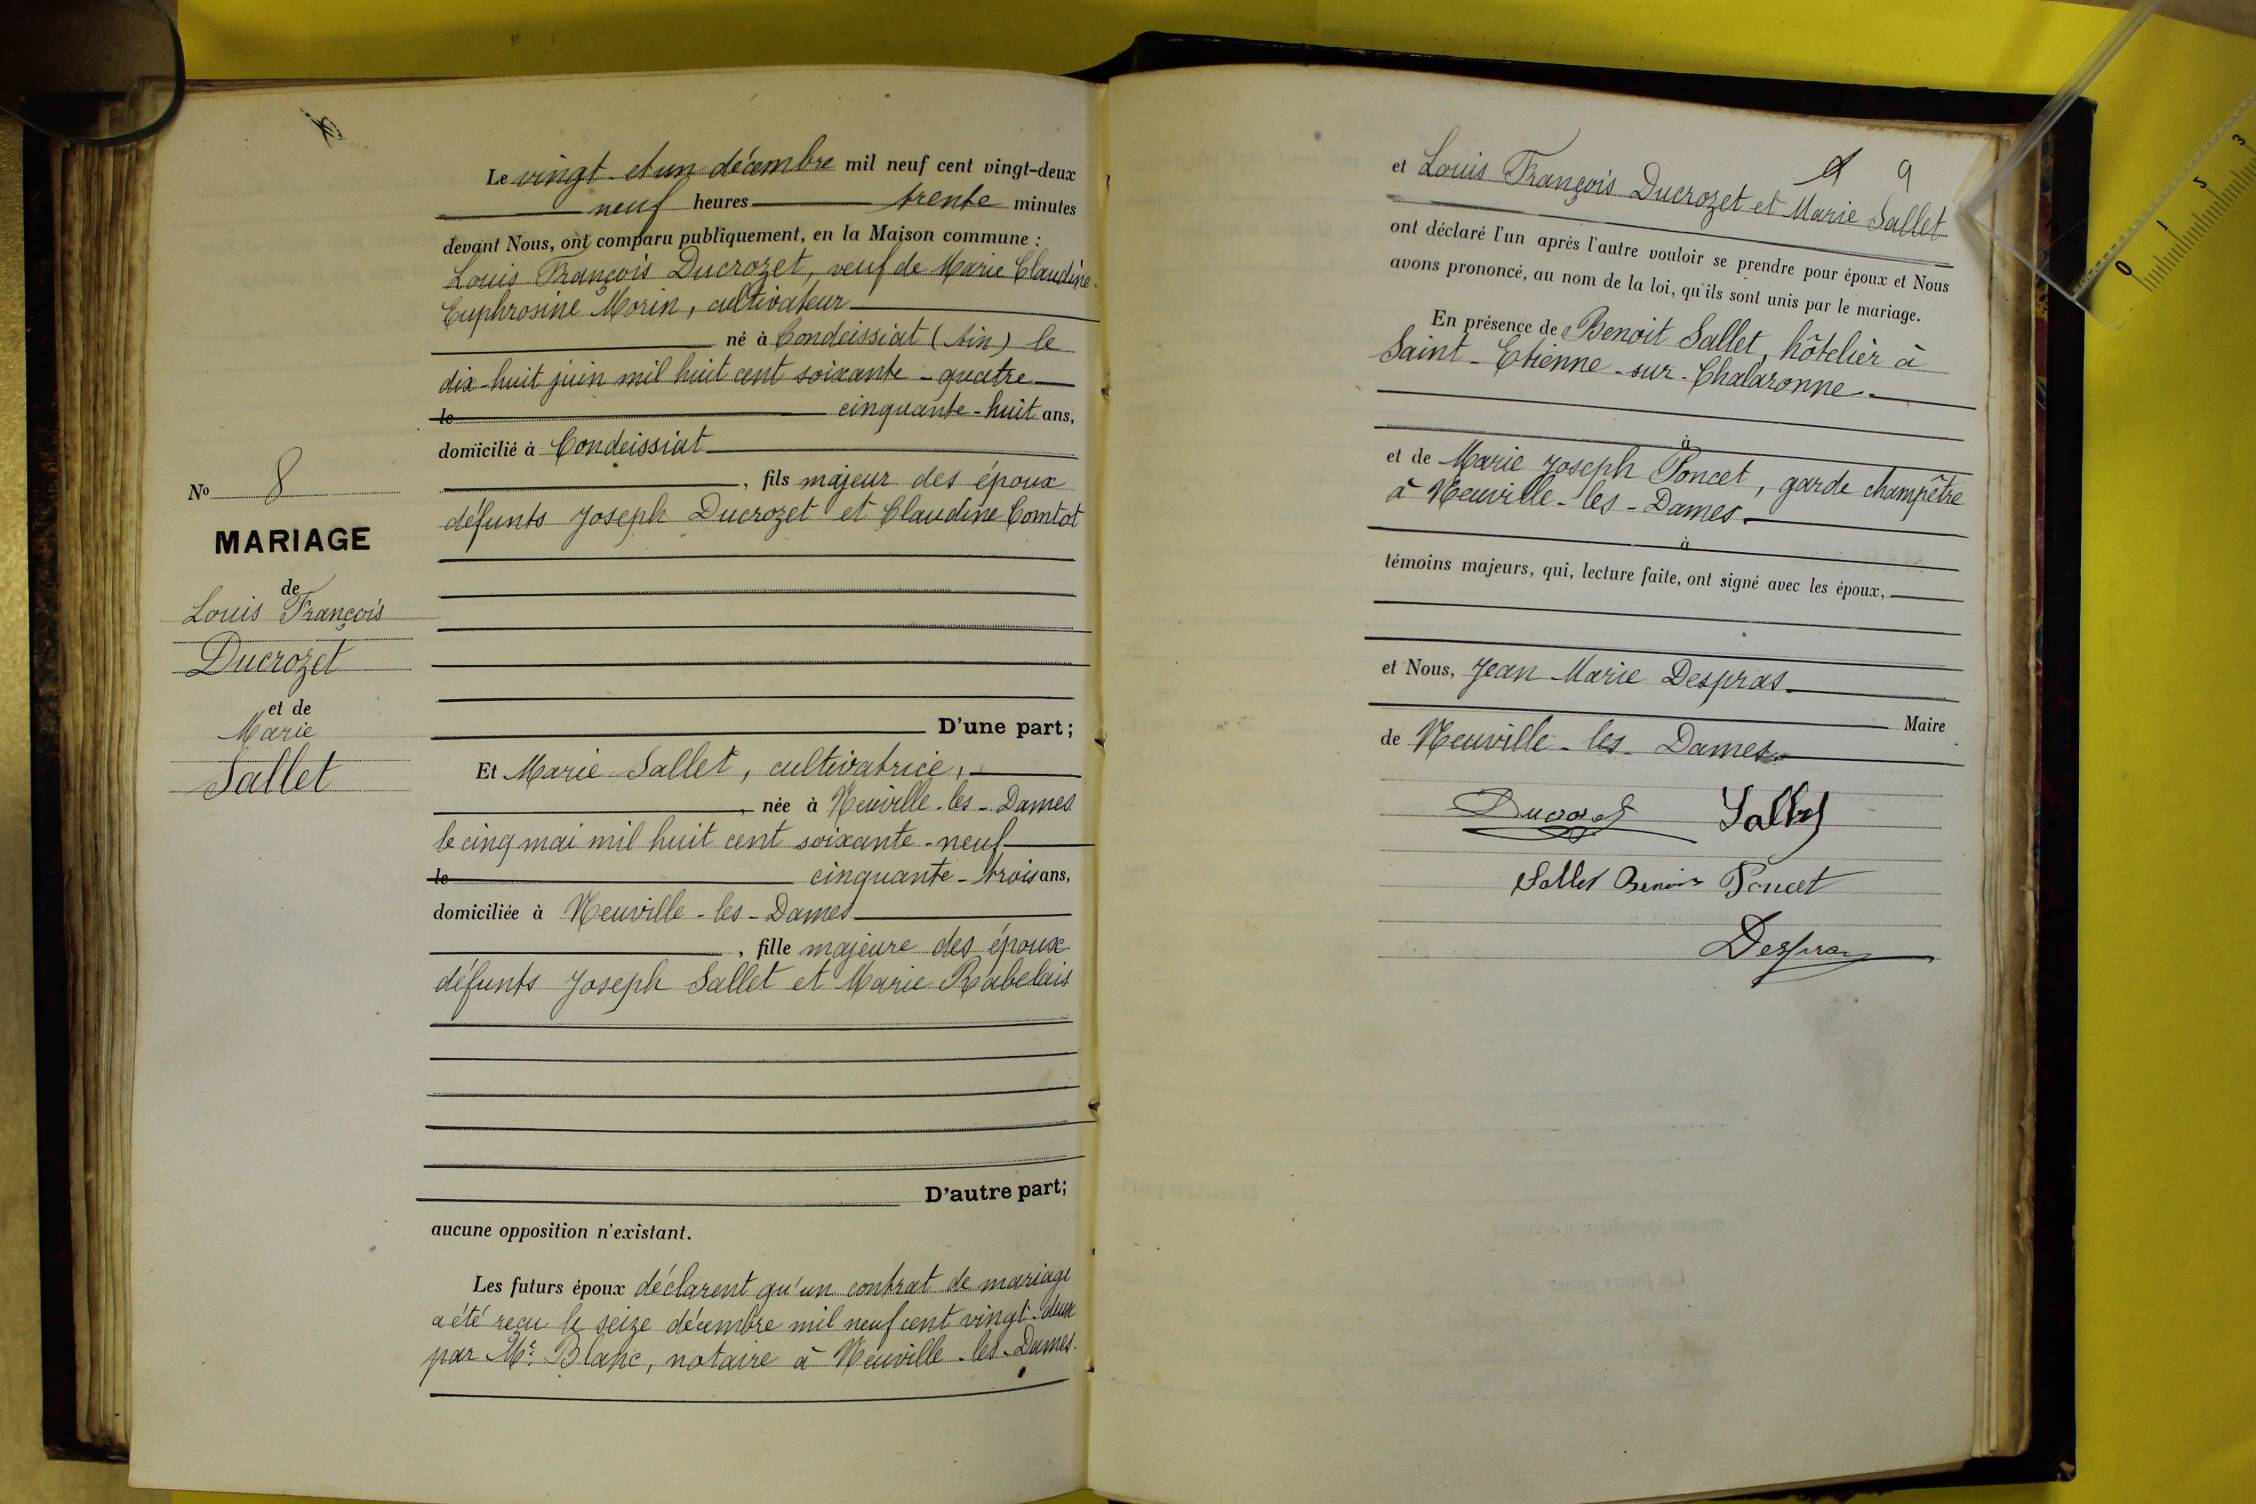 Le vingt et un décembre mil neuf cent vingt-deux
neuf heures trente minutes
devant Nous, ont comparu publiquement, en la Maison commune :
Louis François Ducrozet, veuf de Marie Claudine
Euphrosine Morin, cultivateur
né à Condeissiat (Ain) le
dix-huit juin mil huit cent soixante-quatre
le cinquante-huit ans,
domicilié à Condeissiat
, fils majeur des époux
défunts Joseph Ducrozet et Claudine Comtot
No 8
MARIAGE
de
Louis François
Ducrozet
et de
Marie
Sallet
D'une part;
Et Marie Sallet, cultivatrice,
née à Neuville-les-Dames
le cinq mai mil huit cent soixante-neuf
le cinquante-trois ans,
domiciliée à Neuville-les-Dames
, fille majeure des époux
défunts Joseph Sallet et Marie Rabelais
D'autre part;
aucune opposition n'existant.
Les futurs époux déclarent qu'un contrat de mariage
a été reçu le seize décembre mil neuf cent vingt-deux
par Me. Blanc, notaire à Neuville-les-Dames.
9
et Louis François Ducrozet et Marie Sallet
ont déclaré l'un après l'autre vouloir se prendre pour époux et Nous
avons prononcé, au nom de la loi, qu'ils sont unis par le mariage.
En présence de Benoit Sallet, hôtelier à
Saint-Etienne-sur-Chalaronne.
à
et de Marie Joseph Poncet, garde champêtre
à Neuville-les-Dames.
à
témoins majeurs, qui, lecture faite, ont signé avec les époux,
et Nous, Jean Marie Despras
Maire
de Neuville-les-Dames
Ducrozet Sallet
Sallet Benoit Poncet
Despras
0 1 2 3